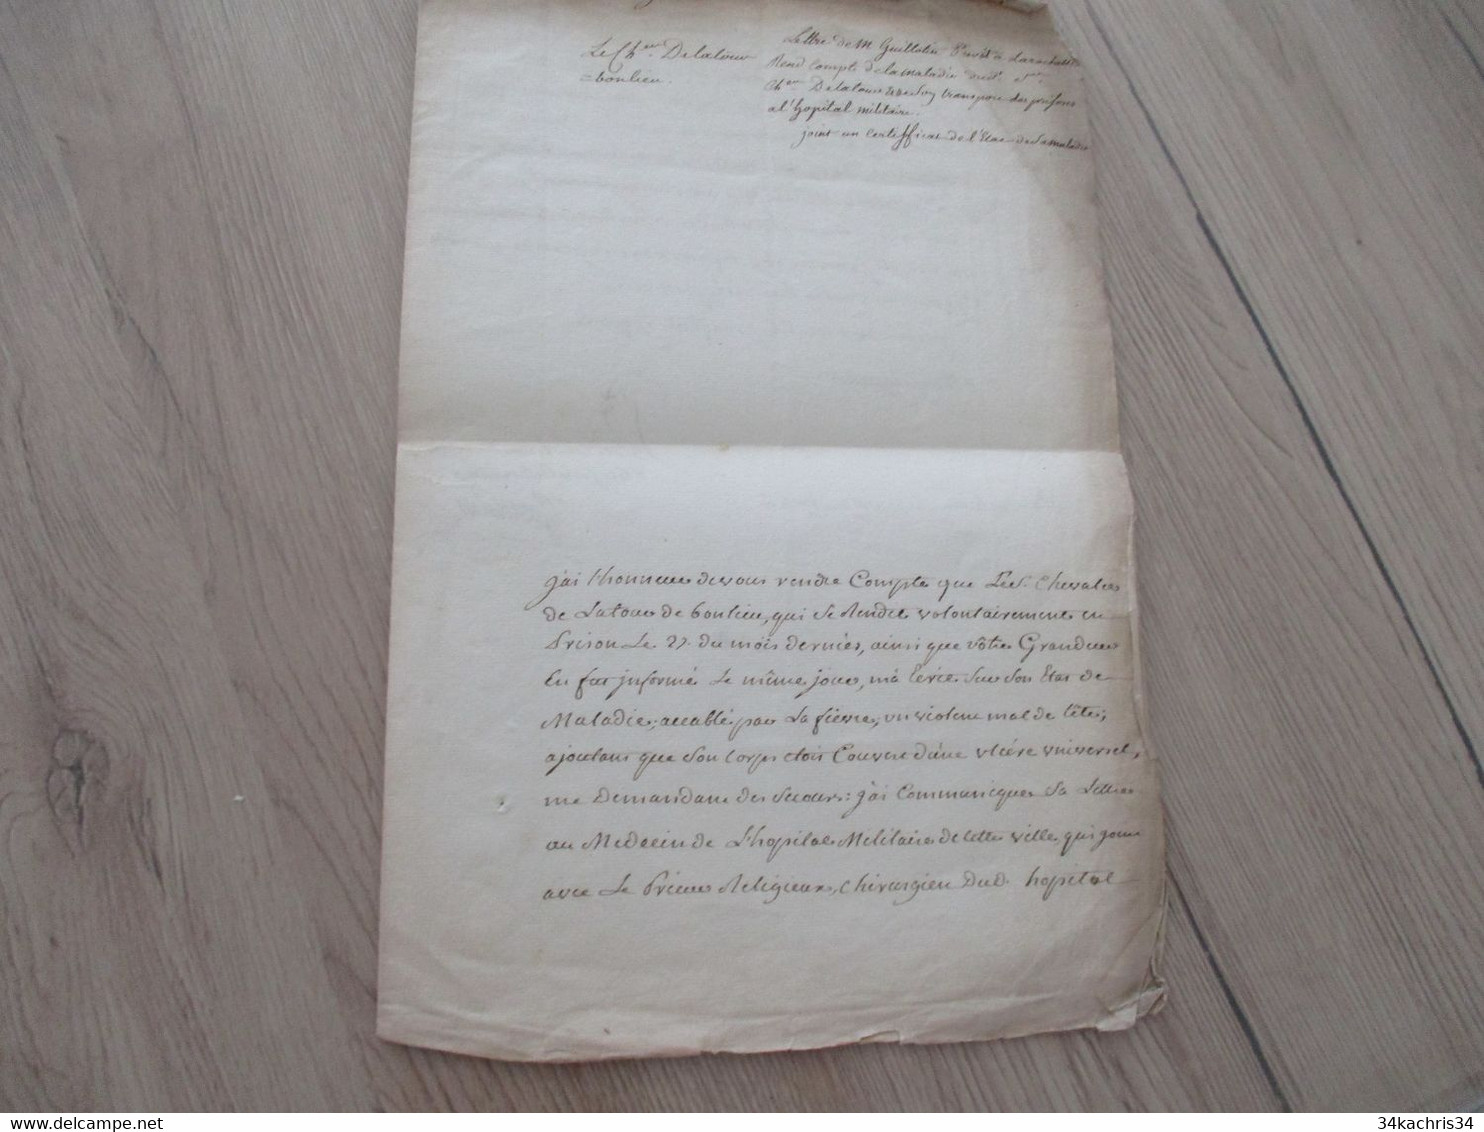 Le Ch.er Delatour
bonlieu
Lettre de M Guillotin Prevôt a Larochelle
Rend compte de la maladie dud. S.r
Ch.er Delatour et de son transport des prisons
a l'hopital militaire.
joint un certifficat de l'Etat de sa maladie
j'ai l'honneur de vous rendre Compte que Led. Chevalier
de Latour de bonlieu, qui se Rendit volontairement en
Prison Le 27. du mois dernier, ainsi que vôtre Grandeur
En fut informé Le même jour, m'a Ecrit sur son Etat de
Maladie, accablé par La fiévre, un violent mal de tête;
ajoutant que son Corps etoit Couvert d'une ulcére universel,
me Demandant des secours: j'ai Communiqué sa Lettre
au Medecin de L'hopital Militaire de cette ville, qui
avec Le Prieur Religieux, Chirurgien Dud. hopital
34kachris34
delcampe.net